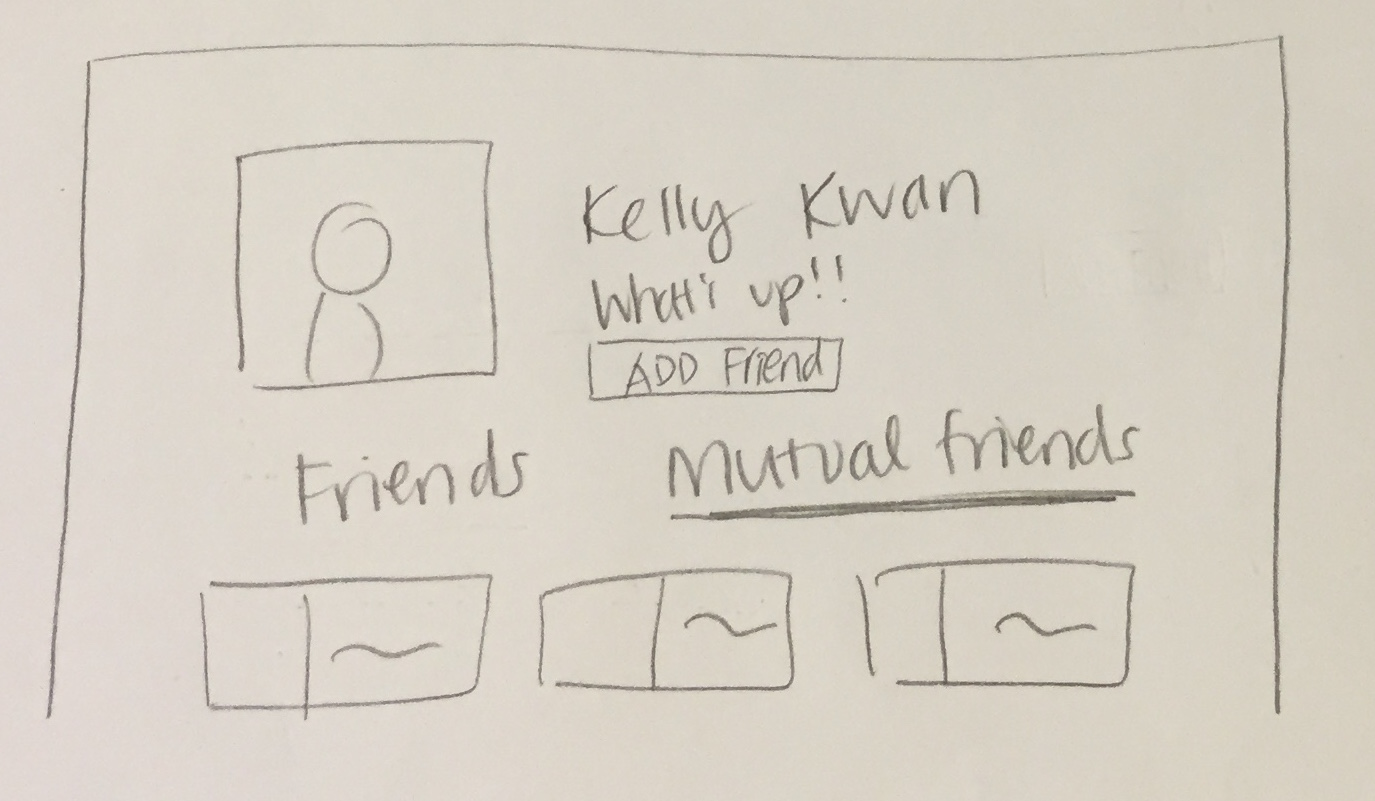 Kelly Kwan
What's up!!
ADD Friend
Friends Mutual friends